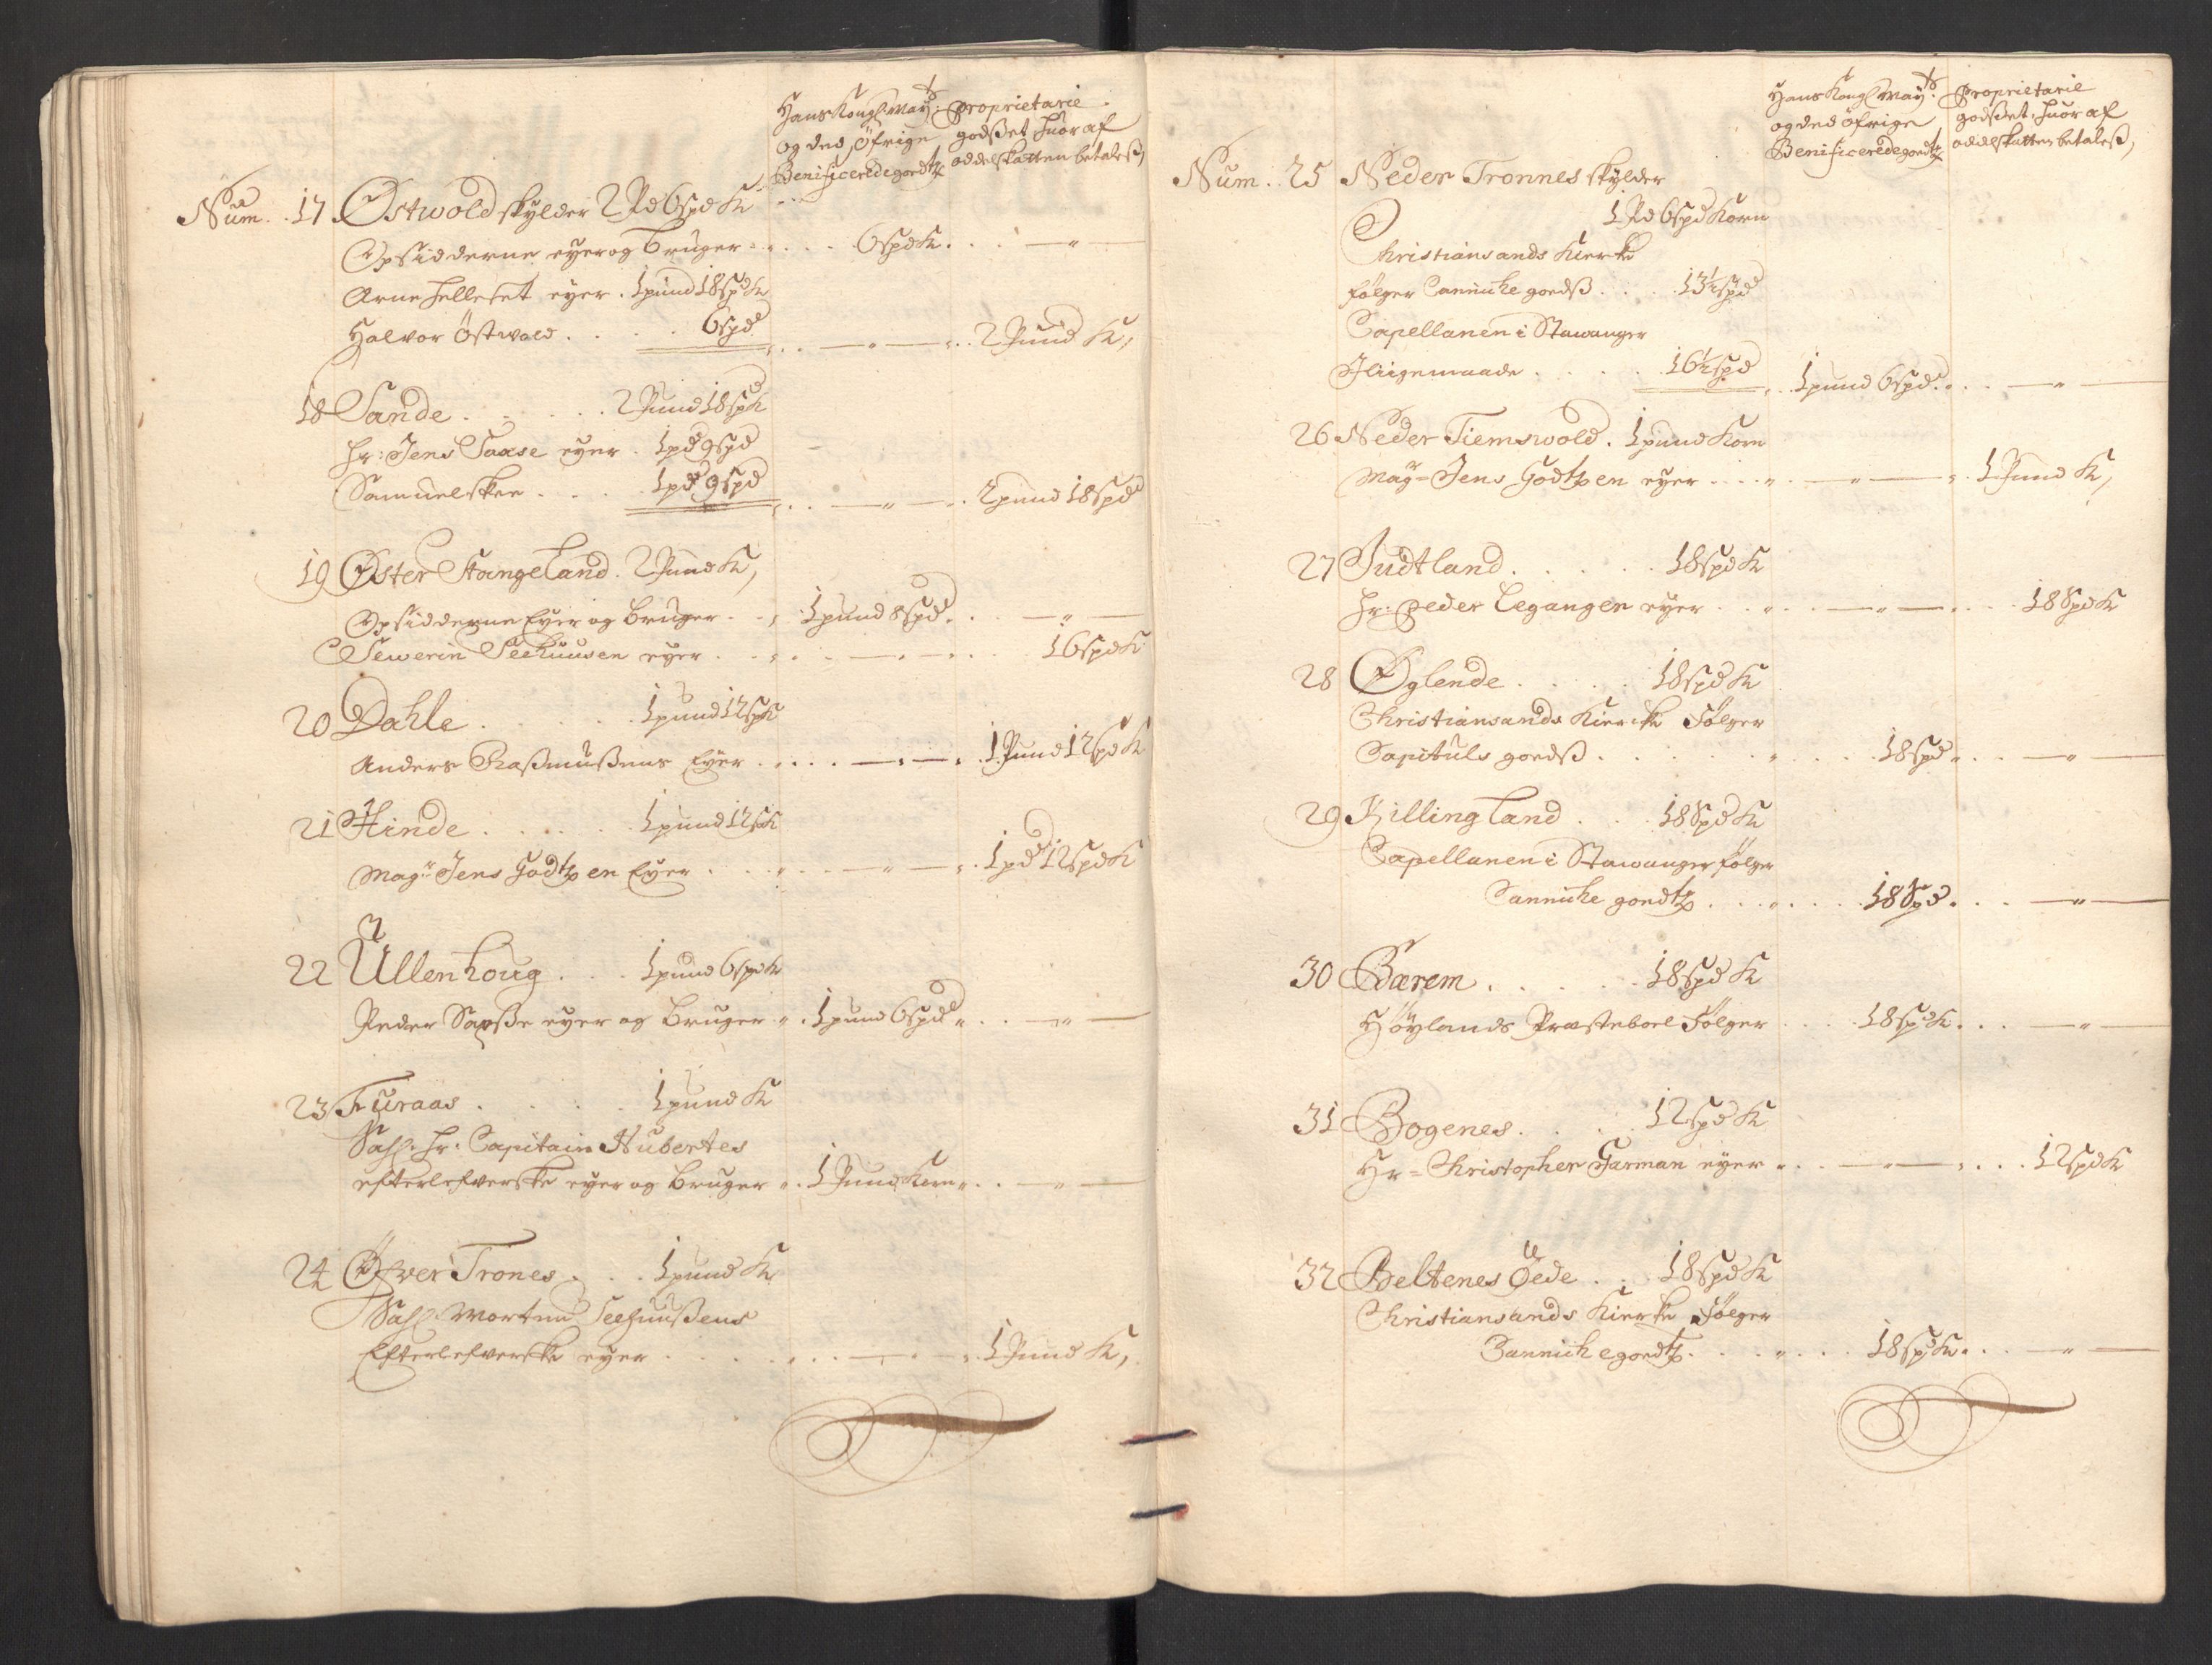 Hans Kongl May:ts
og des öfrige
Benificeredegoedtz
Proprietarie
godßet huor af
oddelskatten betaleß,
Num. 17 Østwold skylder 2 Pd 6 spd K
Opsidderne eyer og bruger . . . 6 spd K. . . — " —
Arne Helleset eyer . 1 pund 18 spd K
Halvor Östwold . . . . 6 spd . . — " — . . 2 Pund K,
18 Sande . . . . . 2 Pund 18 sp K
hr: Jens Saxse eyer . 1 pd 9 spd
Samuelsken . . . . 1 pd 9 spd . . — " — . . 2 pund 18 spd
19 Øster Stangeland . 2 Pund K,
Opsidderne Eyer og bruger . . 1 pund 8 spd. . . — " —
Sewerin Seehuusen eyer . . . — . — . . . 16 spd K
20 Dahle . . . . . 1 pund 12 sp K
Anders Raßmußens Eyer . . . . — . — . . 1 Pund 12 spd K
21 Hinde . . . . . 1 pund 12 sp K
Mag:r Jens Godtzen Eyer . . . . — " — . . 1 pd 12 spd K
22 Ullenhoug . . . 1 pund 6 spd K
Peder Saxße eyer og bruger . . 1 pund 6 spd . . — " —
23 Furaas . . . . 1 pund K
Sahl. hr. Capitain Hubertes
efterlefverske eyer og bruger . . 1 Pund Korn . . — " —
24 Øfver Trones . . . 1 pund K
Sahl. Morten Seehuußens
Efterlefverske eyer . . . . . — . — . . 1 Pund K,
Hans Kongl May:ts
og des öfrige
Benificeredegoedtz
Proprietarie
godßet, huor af
oddelskatten betaleß,
Num. . 25 Neder Tronnes skylder
1 Pd 6 spd Korn
Christiansands Kierke
følger Cannicke goedß . . . 13½ spd
Capellanen i Stawanger
Jliigemaade . . . . . 16½ spd . . 1 pund 6 spd. . . — " —
26 Neder Tiemswold . 1 pund Korn
Mag:r Jens Godtzen eyer . . . . — " — . . 1 Pund K,
27 Judtland . . . . . 18 spd K
hr: Peder Legangen eyer . . . . — " — . . . 18 Spd K
28 Øglende . . . . 18 spd K
Christiansands Kiercke Følger
Capituls goedß . . . . . . . . 18 spd . . — " —
29 Killingland . . . 18 Spd K
Capellanen i Stawanger følger
Cannicke goedtz . . . . . 18 Spd. . . — " —
30 Bærem . . . . . 18 spd K
Höylands Præsteboel Følger . . . 18 spd K. . . — " —
31 Bogenes . . . . 12 spd K
Hr= Christopher Garman eyer . . . — " — . . . 12 spd K
32 Beltenes Øede . . . 18 spd K
Christiansands Kierke Følger
Cannicke goedtz . . . . . 18 spd K. . . — " —